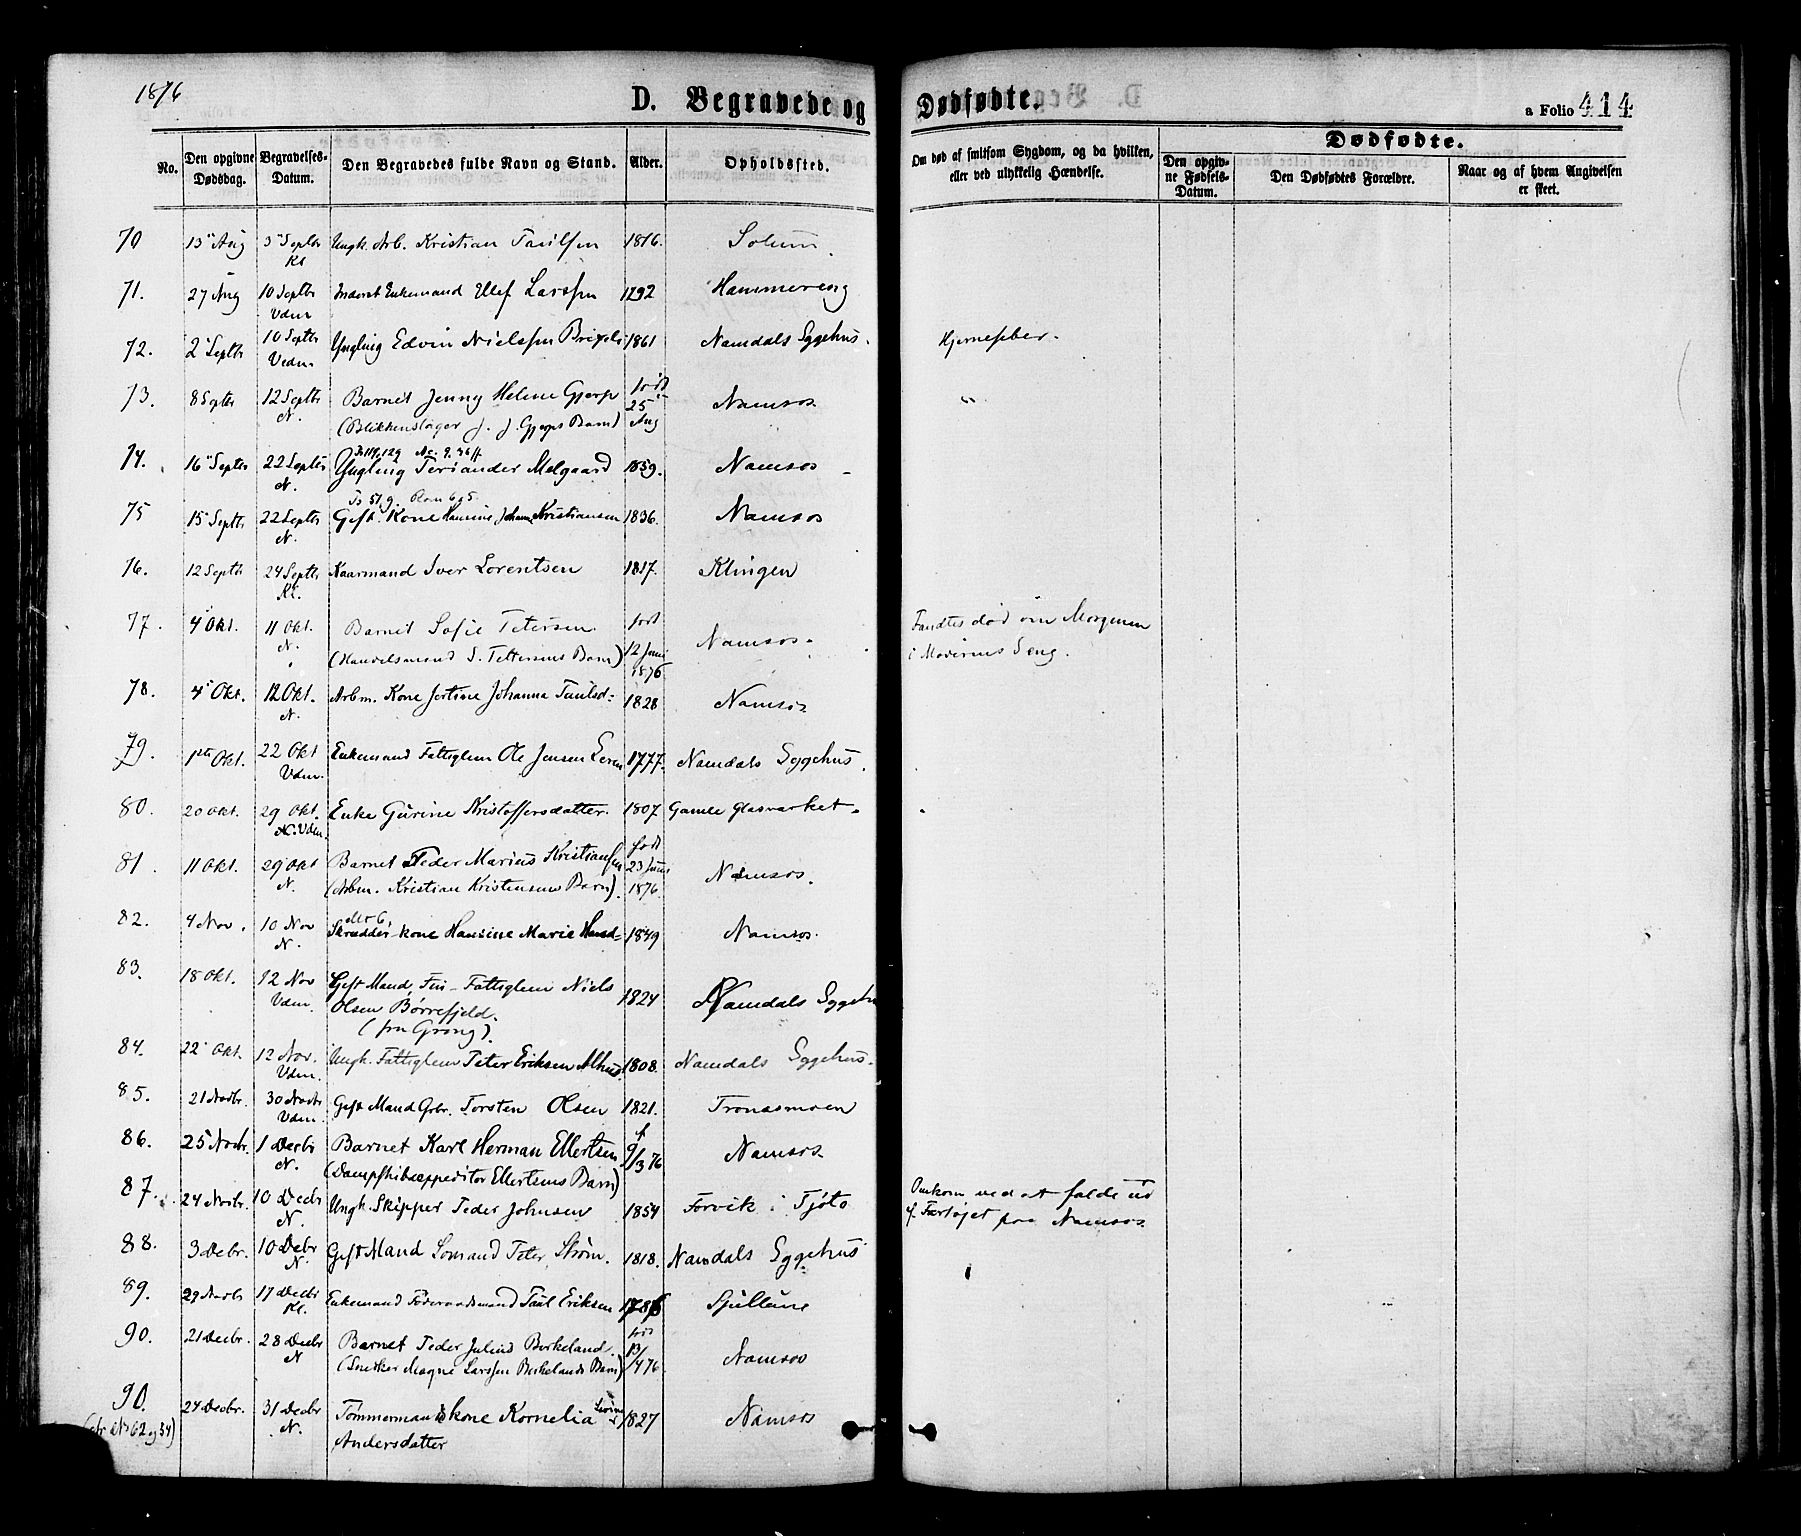 1876
D. Begravede og Dødfødte.
a Folio 414
No. Den opgivne Dødsdag. Begravelses-Datum. Den Begravedes fulde Navn og Stand. Alder. Opholdssted. Om død af smitsom Sygdom, og da hvilken, eller ved ulykkelig Hændelse. Dødfødte.
Den opgivne Fødsels-Datum. Den Dødfødtes Forældre. Naar og af hvem Angivelsen er skeet.
70 13 Aug 3 Septbr Kl Ungk. Arb. Kristian Paulsen 1816. Solum
71. 27 Aug 10 Septbr Vdm Inderst Enkemand Ellef Larssen 1792 Hammereng
72. 2 Septbr 10 Septbr Vedm. Yngling Edvin Nielssen 1861 Namdals Sygehus. Hjernefeber.
73. 8 Septbr 12 Septbr N. Barnet Jenny Helene Gjerp født 25 Aug Namsos "
(Blikkenslager J. J. Gjerps Barn)
74. 16 Septbr 22 Septbr N. Yngling Melgaard 1859. Namsos
75 15 Septbr 22 Septbr N. Gift Kone Hansine Johanne Kristiansen 1836. Namsos
76. 12 Septbr 24 Septbr Kl. Kaarmand Iver Lorentsen 1817. Klingen
77. 4 Okt. 11 Okt. N. Barnet Sofie Petersen født 12 Juni 1876 Namsos. Fandtes død om Morgenen
(Handelsmand S. Pettersens Barn) i Moderens Seng.
78. 4 Okt. 12 Okt. N. Arbm. Kone Johanna Paulsd. 1828 Namsos
79. 1ste Okt. 22 Okt Vdm. Enkemand Fattiglem Ole Jensen 1777. Namdals Sygehus.
80. 20 Okt. 29 Okt. N. Vdm. Enke Gurine Kristoffersdatter. 1807 Gamle Glasværket
81. 11 Okt. 29 Okt N. Barnet Peder Marius Kristiansen født 23 Juni 1876. Namsos.
(Arbm. Kristian Kristensens Barn).
82. 4 Nov. 10 Nov N. Skrædder-kone Hansine Marie Hansd. 1849 Namsos.
83. 18 Okt. 12 Nov Vdm. Gift Mand, Fin-Fattiglem Niels 1824 Namdals Sygehus
Olsen Børrefjeld.
(fra Grong).
84. 22 Okt. 12 Nov. Vdm. Ungk. Fattiglem Peter Eriksen 1808. Namdals Sygehus.
85. 21 Novbr. 30 Novbr Vdm. Gift Mand Gbr. Torsten Olsen 1821. Tronesmoen
86. 25 Novbr. 1 Decbr N. Barnet Karl Herman Ellertsen f 9/3 76 Namsos.
(Dampskibsexpeditør Ellertsens Barn)
87. 24 Novbr. 10 Decbr N. Ungk. Skipper Peder Johnsen 1854 Forvik i Tjøtø Omkom ved at falde ud
af Fartøjet paa Namsos.
88. 3 Decbr. 10 Decbr N. Gift Mand Lomand Peter Strøm. 1818. Namdals Sygehus
89. 29 Novbr 17 Decbr Kl. Enkemand Føderaadsmand Paul Eriksen 1786 Spillum
90. 21 Decbr. 28 Decbr N Barnet Peder Julius Birkeland. født 13/4 76. Namsos
(Snekker Magne Larssen Birkelands Barn)
90. 24 Decbr. 31 Decbr N. Tømmermandskone Kornelia 1827 Namsos
(cfr. No 62 og 54) Andersdatter